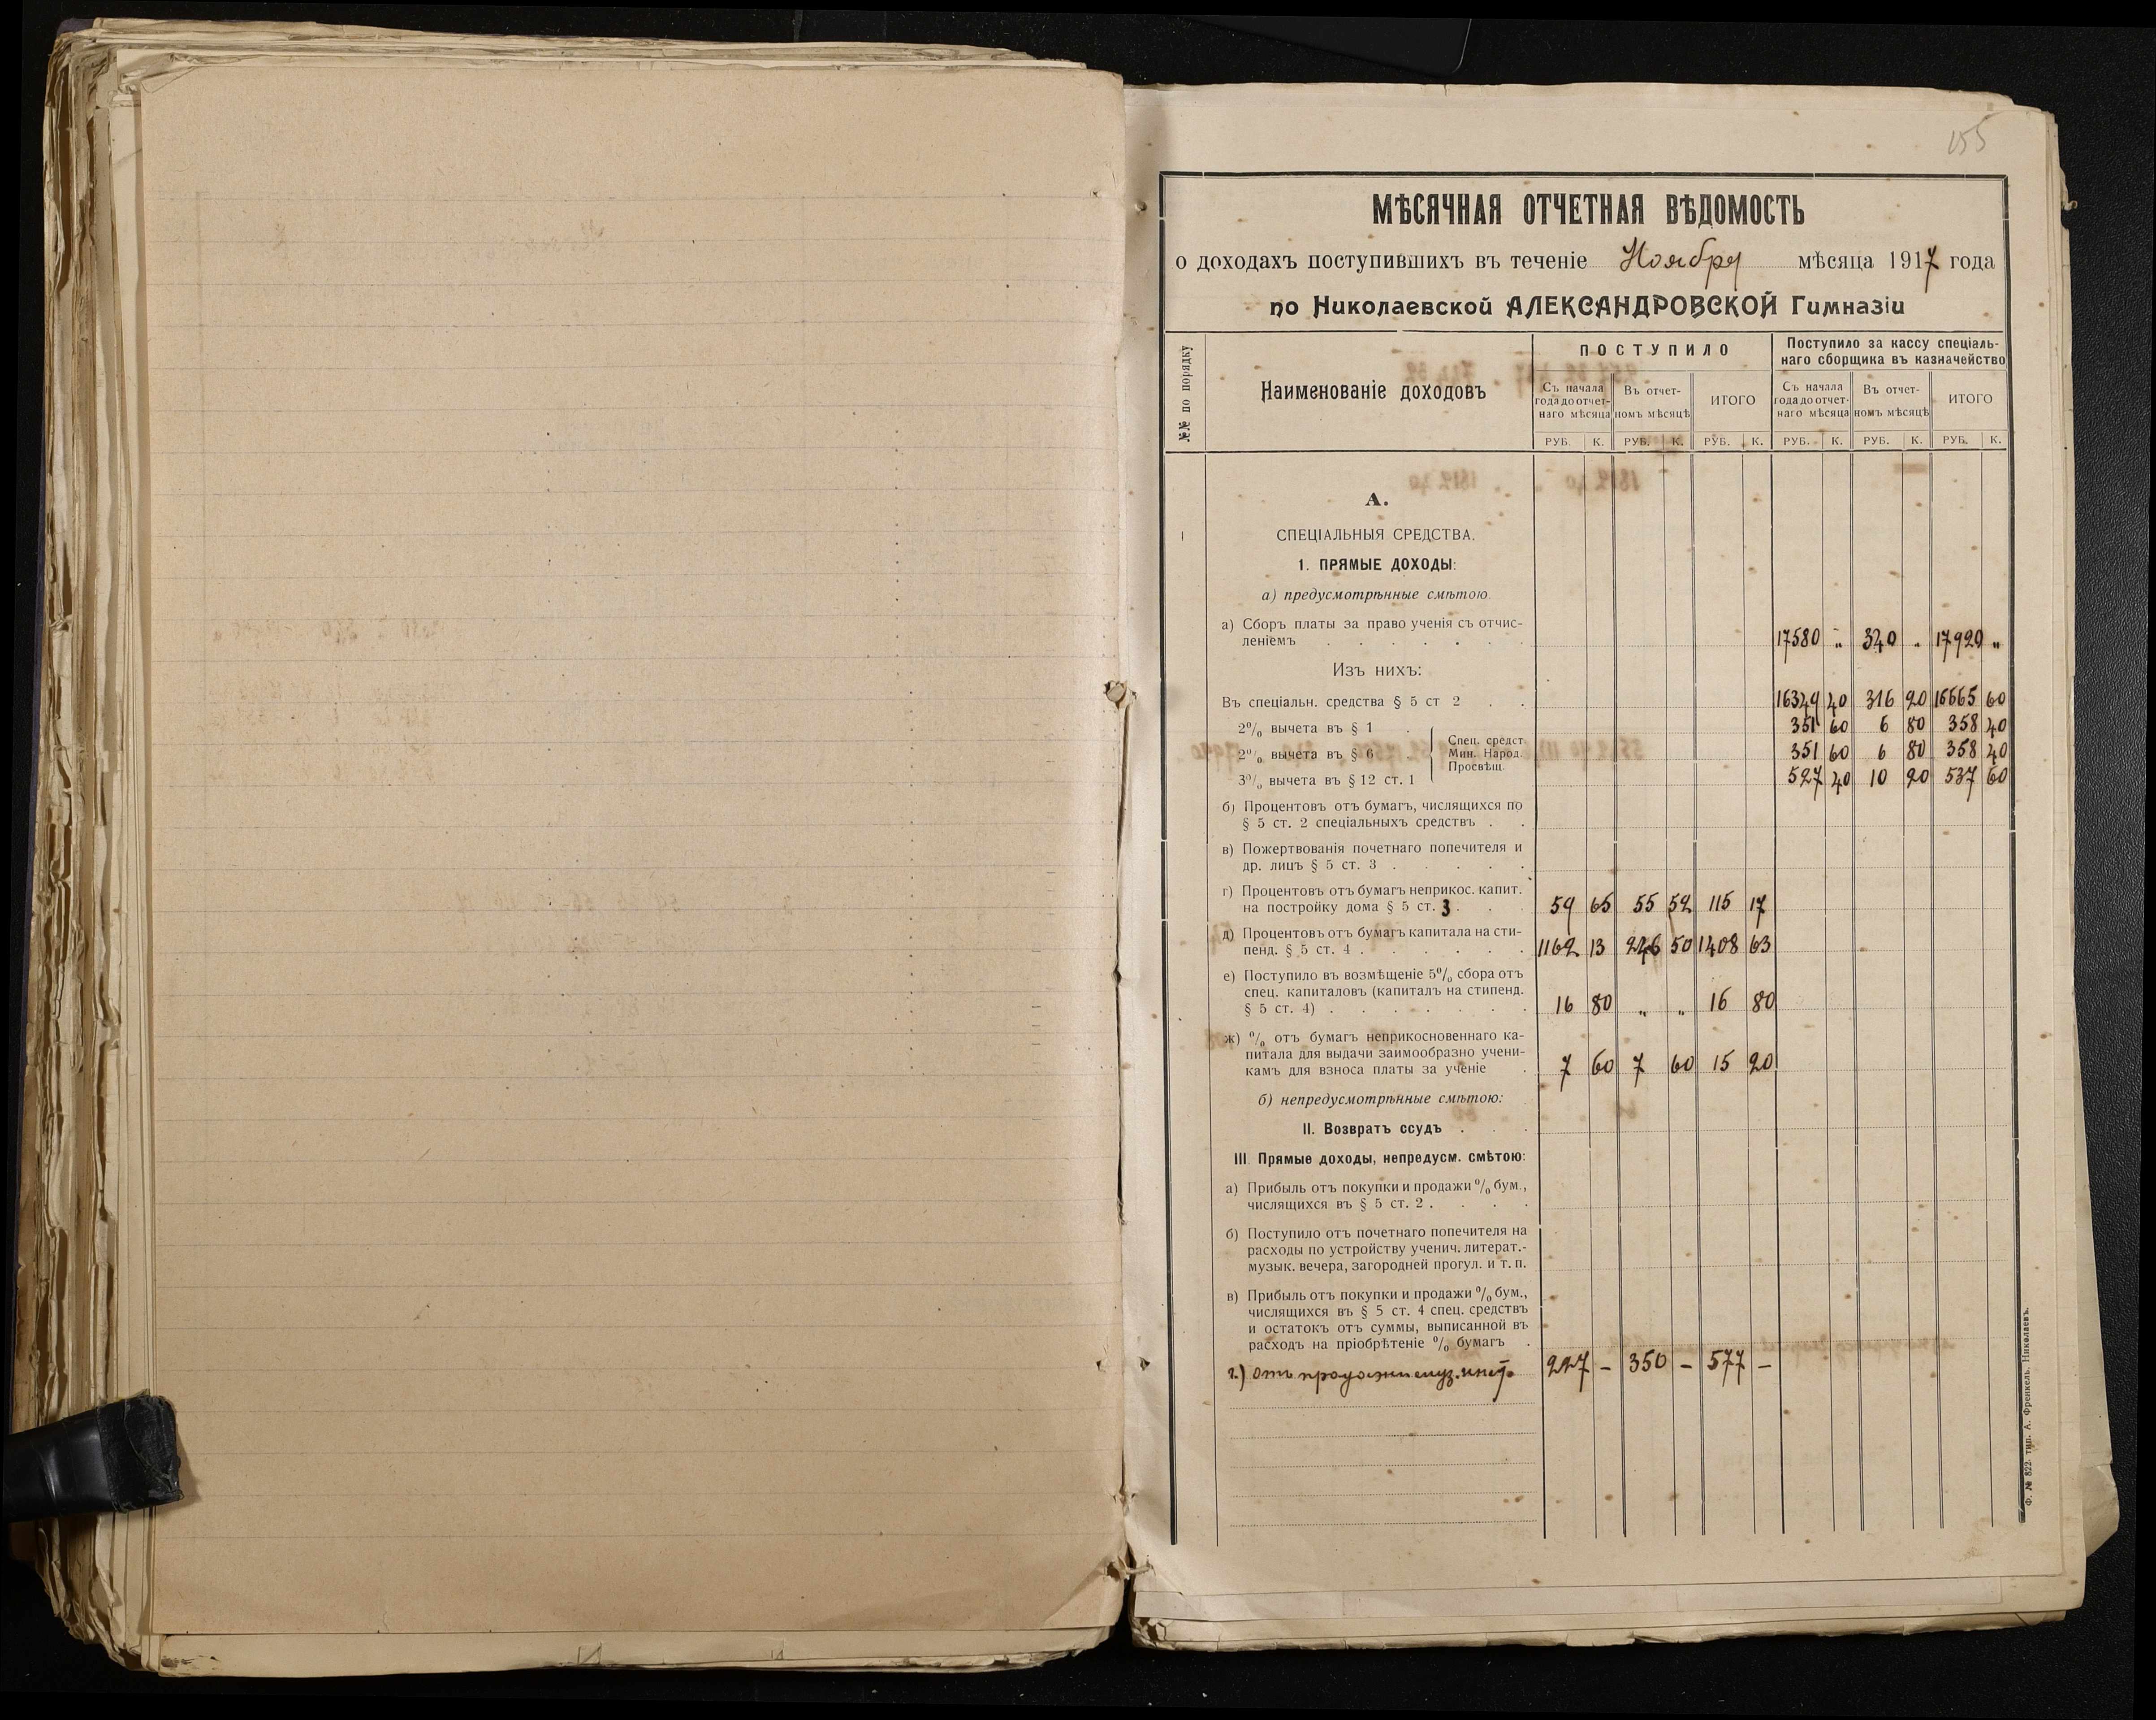 155
МѢСЯЧНАЯ ОТЧЕТНАЯ ВѢДОМОСТЬ
о доходахъ поступившихъ въ теченіе Ноября мѣсяца 1917 года
по Николаевской АЛЕКСАНДРОВСКОЙ Гимназіи
№№ по порядку
Наименованіе доходовъ
ПОСТУПИЛО
Поступило за кассу спеціаль-
наго сборщика въ казначейство
Съ начала
года до отчет-
наго мѣсяца
Въ отчет-
номъ мѣсяцѣ
ИТОГО
Съ начала
года до отчет-
наго мѣсяца
Въ отчет-
номъ мѣсяцѣ
ИТОГО
РУБ. К. РУБ. К. РУБ. К. РУБ. К. РУБ. К. РУБ. К.
А.
1 СПЕЦІАЛЬНЫЯ СРЕДСТВА.
1. ПРЯМЫЕ ДОХОДЫ:
а) предусмотрѣнные смѣтою.
а) Сборъ платы за право ученія съ отчис-
леніемъ . . . . . . 17580 „ 340 „ 17920 „
Изъ нихъ:
Въ спеціальн. средства § 5 ст 2 . . 16349 40 316 20 16665 60
2% вычета въ § 1 . 351 60 6 80 358 40
2% вычета въ § 6 . 351 60 6 80 358 40
3% вычета въ § 12 ст. 1 527 40 10 20 537 60
Спец. средст.
Мин. Народ.
Просвѣщ.
б) Процентовъ отъ бумагъ, числящихся по
§ 5 ст. 2 спеціальныхъ средствъ . .
в) Пожертвованія почетнаго попечителя и
др. лицъ § 5 ст. 3 . . . . .
г) Процентовъ отъ бумагъ неприкос. капит.
на постройку дома § 5 ст. 3 . . . 59 65 55 52 115 17
д) Процентовъ отъ бумагъ капитала на сти-
пенд. § 5 ст. 4 . . . . . . 1162 13 246 50 1408 63
е) Поступило въ возмѣщеніе 5% сбора отъ
спец. капиталовъ (капиталъ на стипенд.
§ 5 ст. 4) . . . . . . . 16 80 „ „ 16 80
ж) % отъ бумагъ неприкосновеннаго ка-
питала для выдачи заимообразно учени-
камъ для взноса платы за ученіе . 7 60 7 60 15 20
б) непредусмотрѣнные смѣтою:
II. Возвратъ ссудъ . . .
III. Прямые доходы, непредусм. смѣтою:
а) Прибыль отъ покупки и продажи % бум.,
числящихся въ § 5 ст. 2 . . . .
б) Поступило отъ почетнаго попечителя на
расходы по устройству ученич. литерат.-
музык. вечера, загородней прогул. и т. п.
в) Прибыль отъ покупки и продажи % бум.,
числящихся въ § 5 ст. 4 спец. средствъ
и остатокъ отъ суммы, выписанной въ
расходъ на пріобрѣтеніе % бумагъ .
г.) отъ продажи муз. инстр. 227 – 350 – 577 –
Ф. № 822. тип. А. Френкель, Николаевъ.